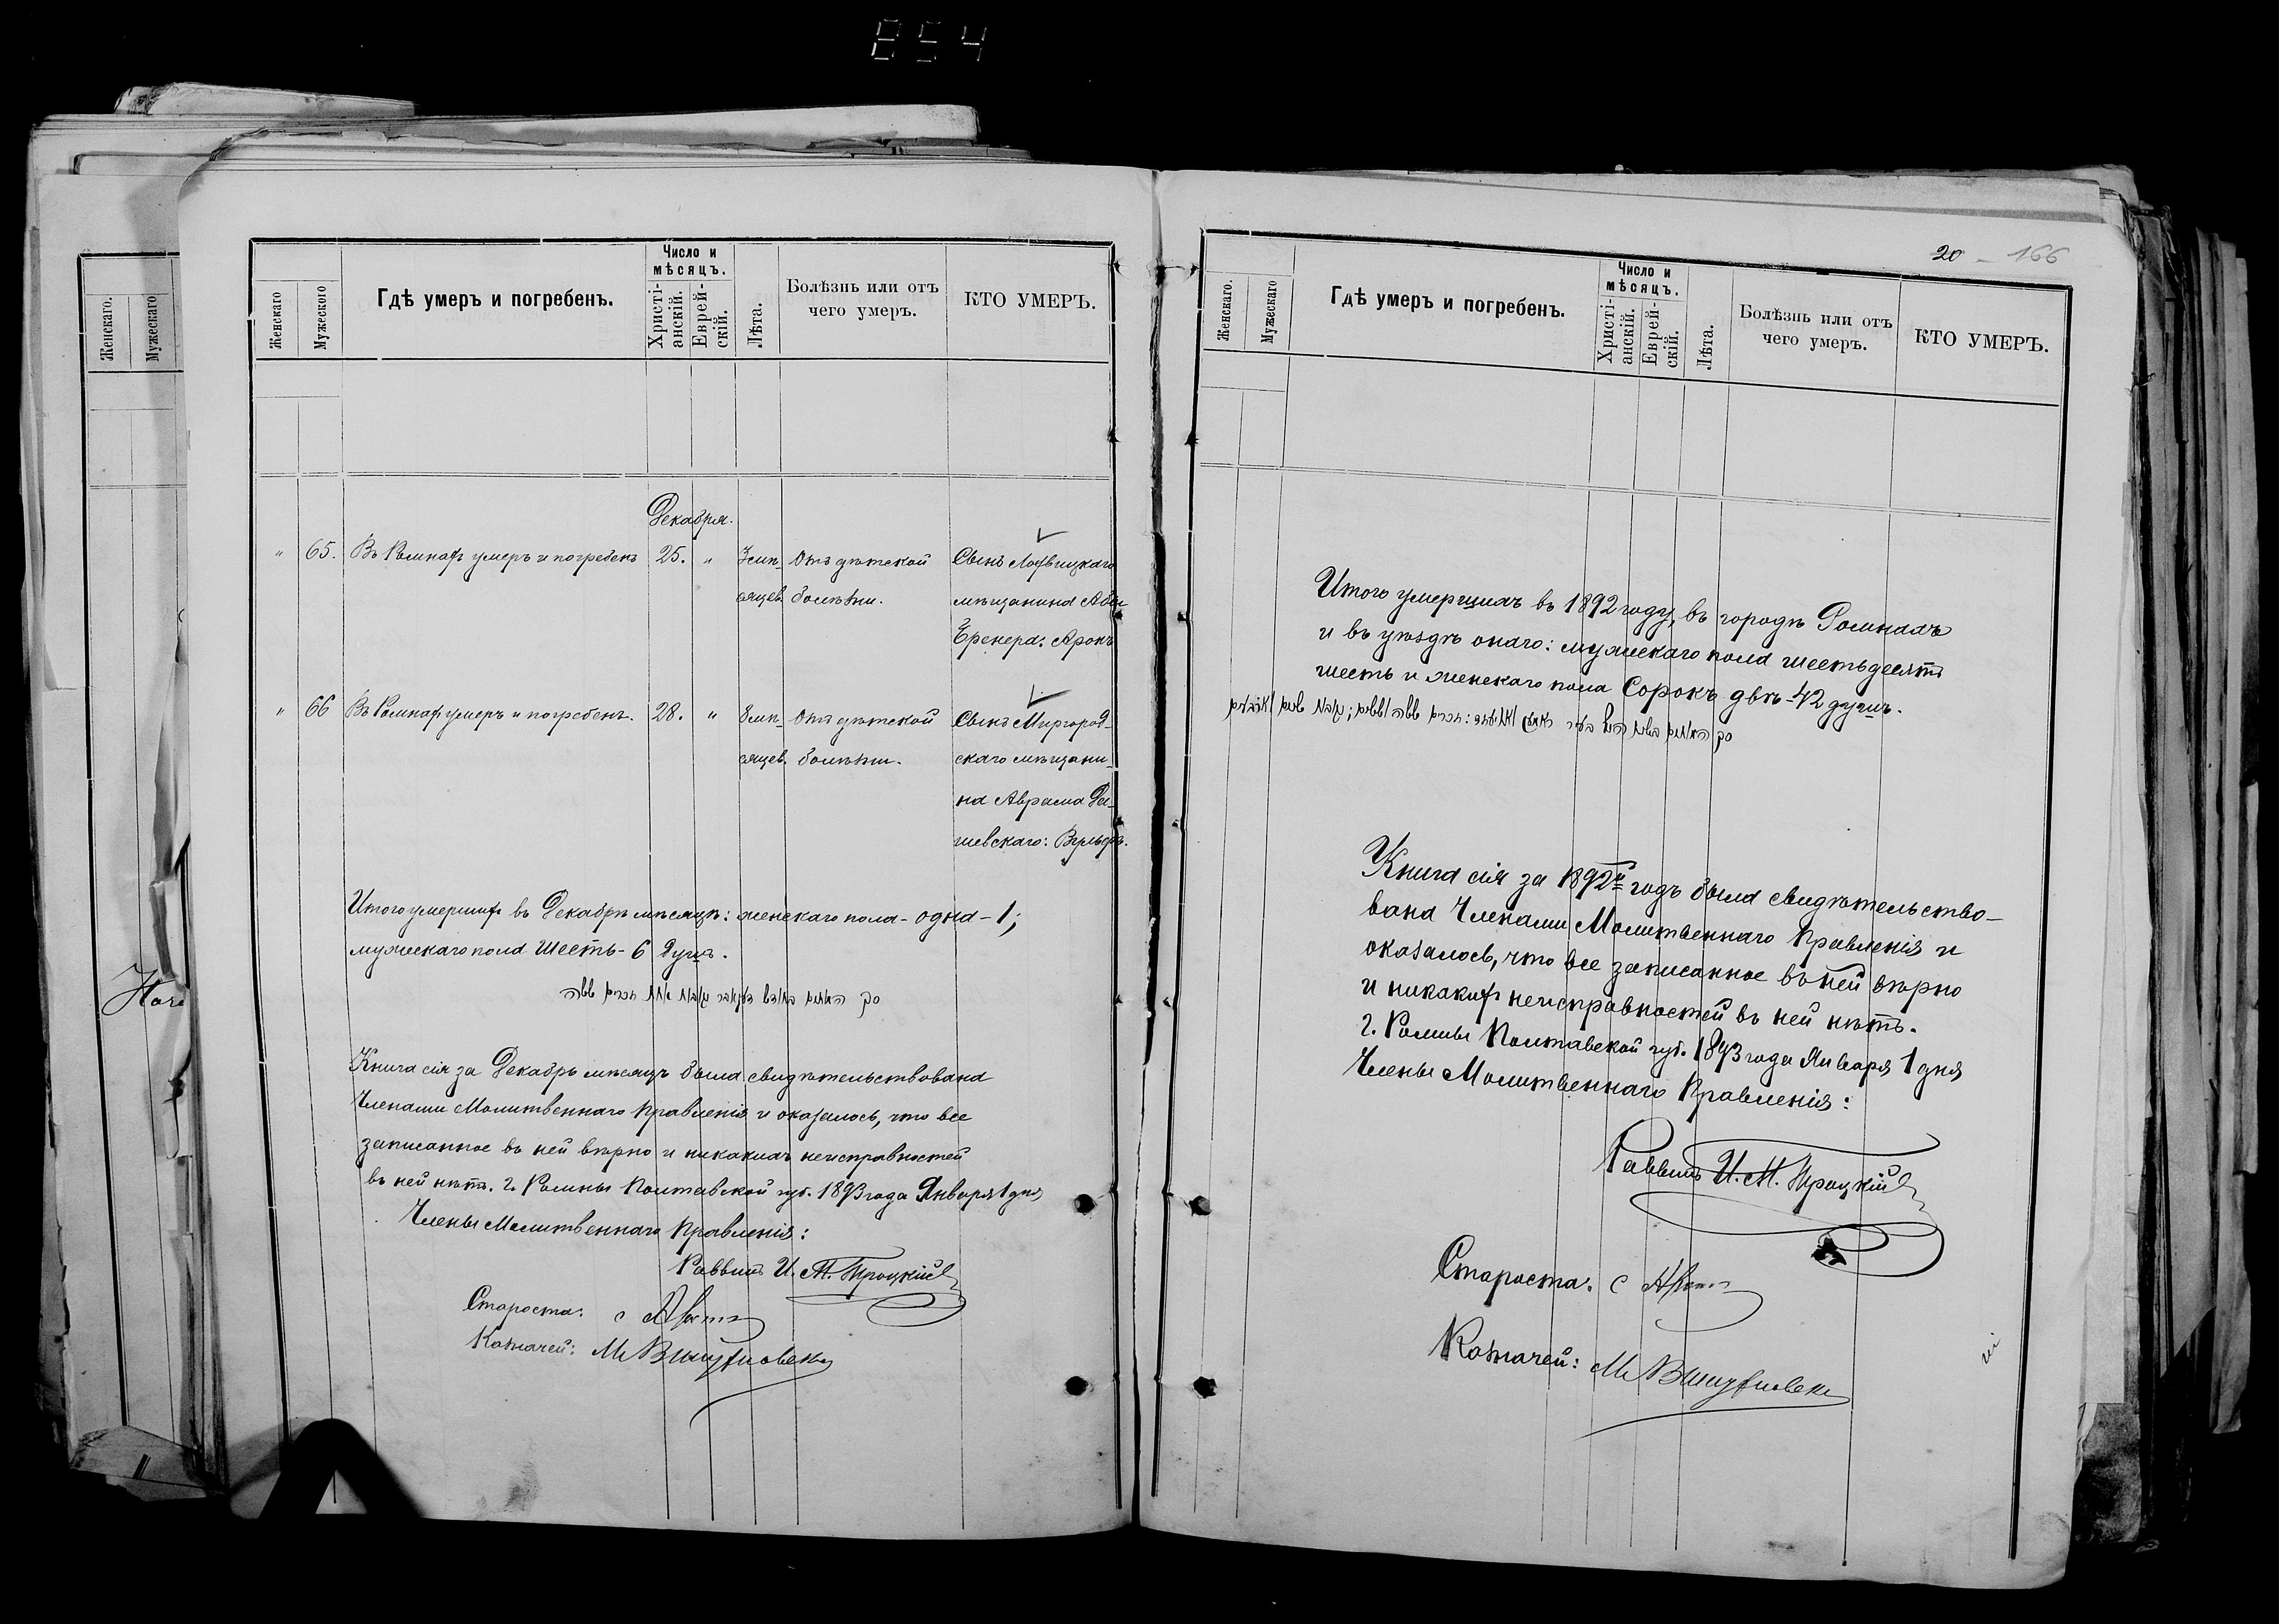 854
Женскаго.
Мужескаго
Женскаго
Мужескаго
Гдѣ умеръ и погребенъ.
Число и
мѣсяцъ.
Христі-
анскій.
Еврей-
скій.
Лѣта.
Болѣзнь или отъ
чего умеръ.
КТО УМЕРЪ.
Декабря.
" 65. Въ Ромнахъ умеръ и погребенъ 25. " 3 мѣ- Отъ дѣтской Сынъ Лохвицкаго
сяцев. болѣзни. мѣщанина
Аронъ
" 66 Въ Ромнахъ умеръ и погребенъ. 28. " мѣ- Отъ дѣтской Сынъ Миргород-
сяцев. болѣзни. скаго мѣщани-
на Аврама
шевскаго:
Итого умершихъ въ Декабрѣ мѣсяцѣ: женскаго пола - одна - 1;
мужескаго пола шесть - 6 душъ.
Книга сія за Декабрь мѣсяцъ была свидѣтельствована
Членами Молитвеннаго Правленія и оказалось, что все
записанное въ ней вѣрно и никакихъ неисправностей
въ ней нѣтъ. г. Ромны Полтавской губ. 1893 года Января 1 дня
Члены Молитвеннаго Правленія:
Раввинъ И. М. Троцкій
Староста: с
Казначей: М
20 - 166
Женскаго.
Мужескаго
Гдѣ умеръ и погребенъ.
Число и
мѣсяцъ.
Христі-
анскій.
Еврей-
скій.
Лѣта.
Болѣзнь или отъ
чего умеръ.
КТО УМЕРЪ.
Итого умершихъ въ 1892 году, въ городѣ Ромнахъ
и въ уѣздѣ онаго: мужескаго пола шестьдесятъ
шесть и женскаго пола Сорокъ двѣ - 42 душъ.
Книга сія за 1892й годъ была свидѣтельство-
вана Членами Молитвеннаго Правленія и
оказалось, что все записанное въ ней вѣрно
и никакихъ неисправностей въ ней нѣтъ.
г. Ромны Полтавской губ. 1893 года Января 1 дня
Члены Молитвеннаго Правленія:
Раввинъ И. М. Троцкій
Староста: с
Казначей: М